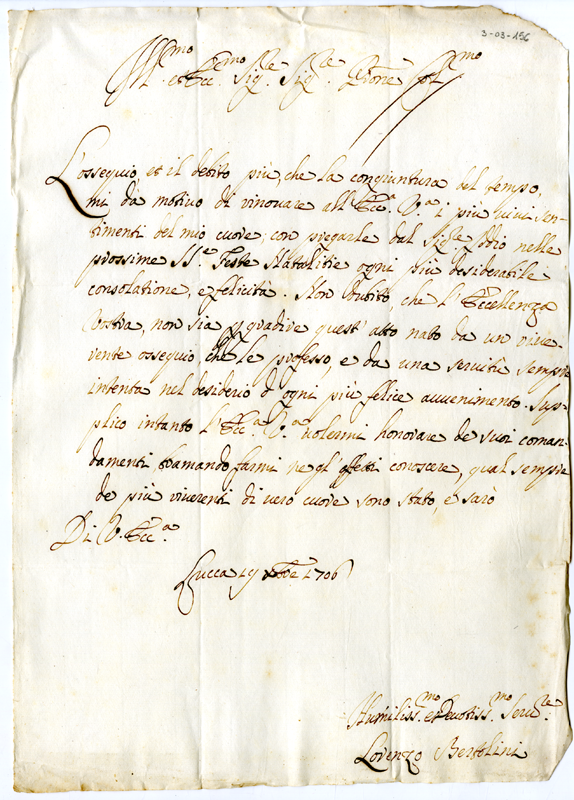 3-03-156
Ill.mo et Ecc.mo Sig.re Sig.re P̃rone Col.mo
L'ossequio, et il debito più, che la congiuntura del tempo,
mi dà motivo di rinouare all'Ecc.a V.a i più uiui sen-
timenti del mio cuore, con pregarle dal Sig.re Iddio nelle
prossime SS.e Feste Natalitie ogni più desiderabile
consolatione, e felicità. Non dubito, che l'Eccellenza
Vostra, non sia p gradire quest'atto nato da un riue-
rente ossequio che le professo, e da una seruitù sempre
intenta nel desiderio d'ogni più felice auuenimento. Sup-
plico intanto l'Ecc.a V.a uolermi honorare de suoi coman-
damenti bramando farmi negl'effetti conoscere, qual sempre
de più riuerenti di uero cuore sono stato, e sarò
Di V. Ecc.a
Lucca 19 Xbre 1706
Humiliss.mo et Deuotiss.mo Seru.re
Lorenzo Bertolini